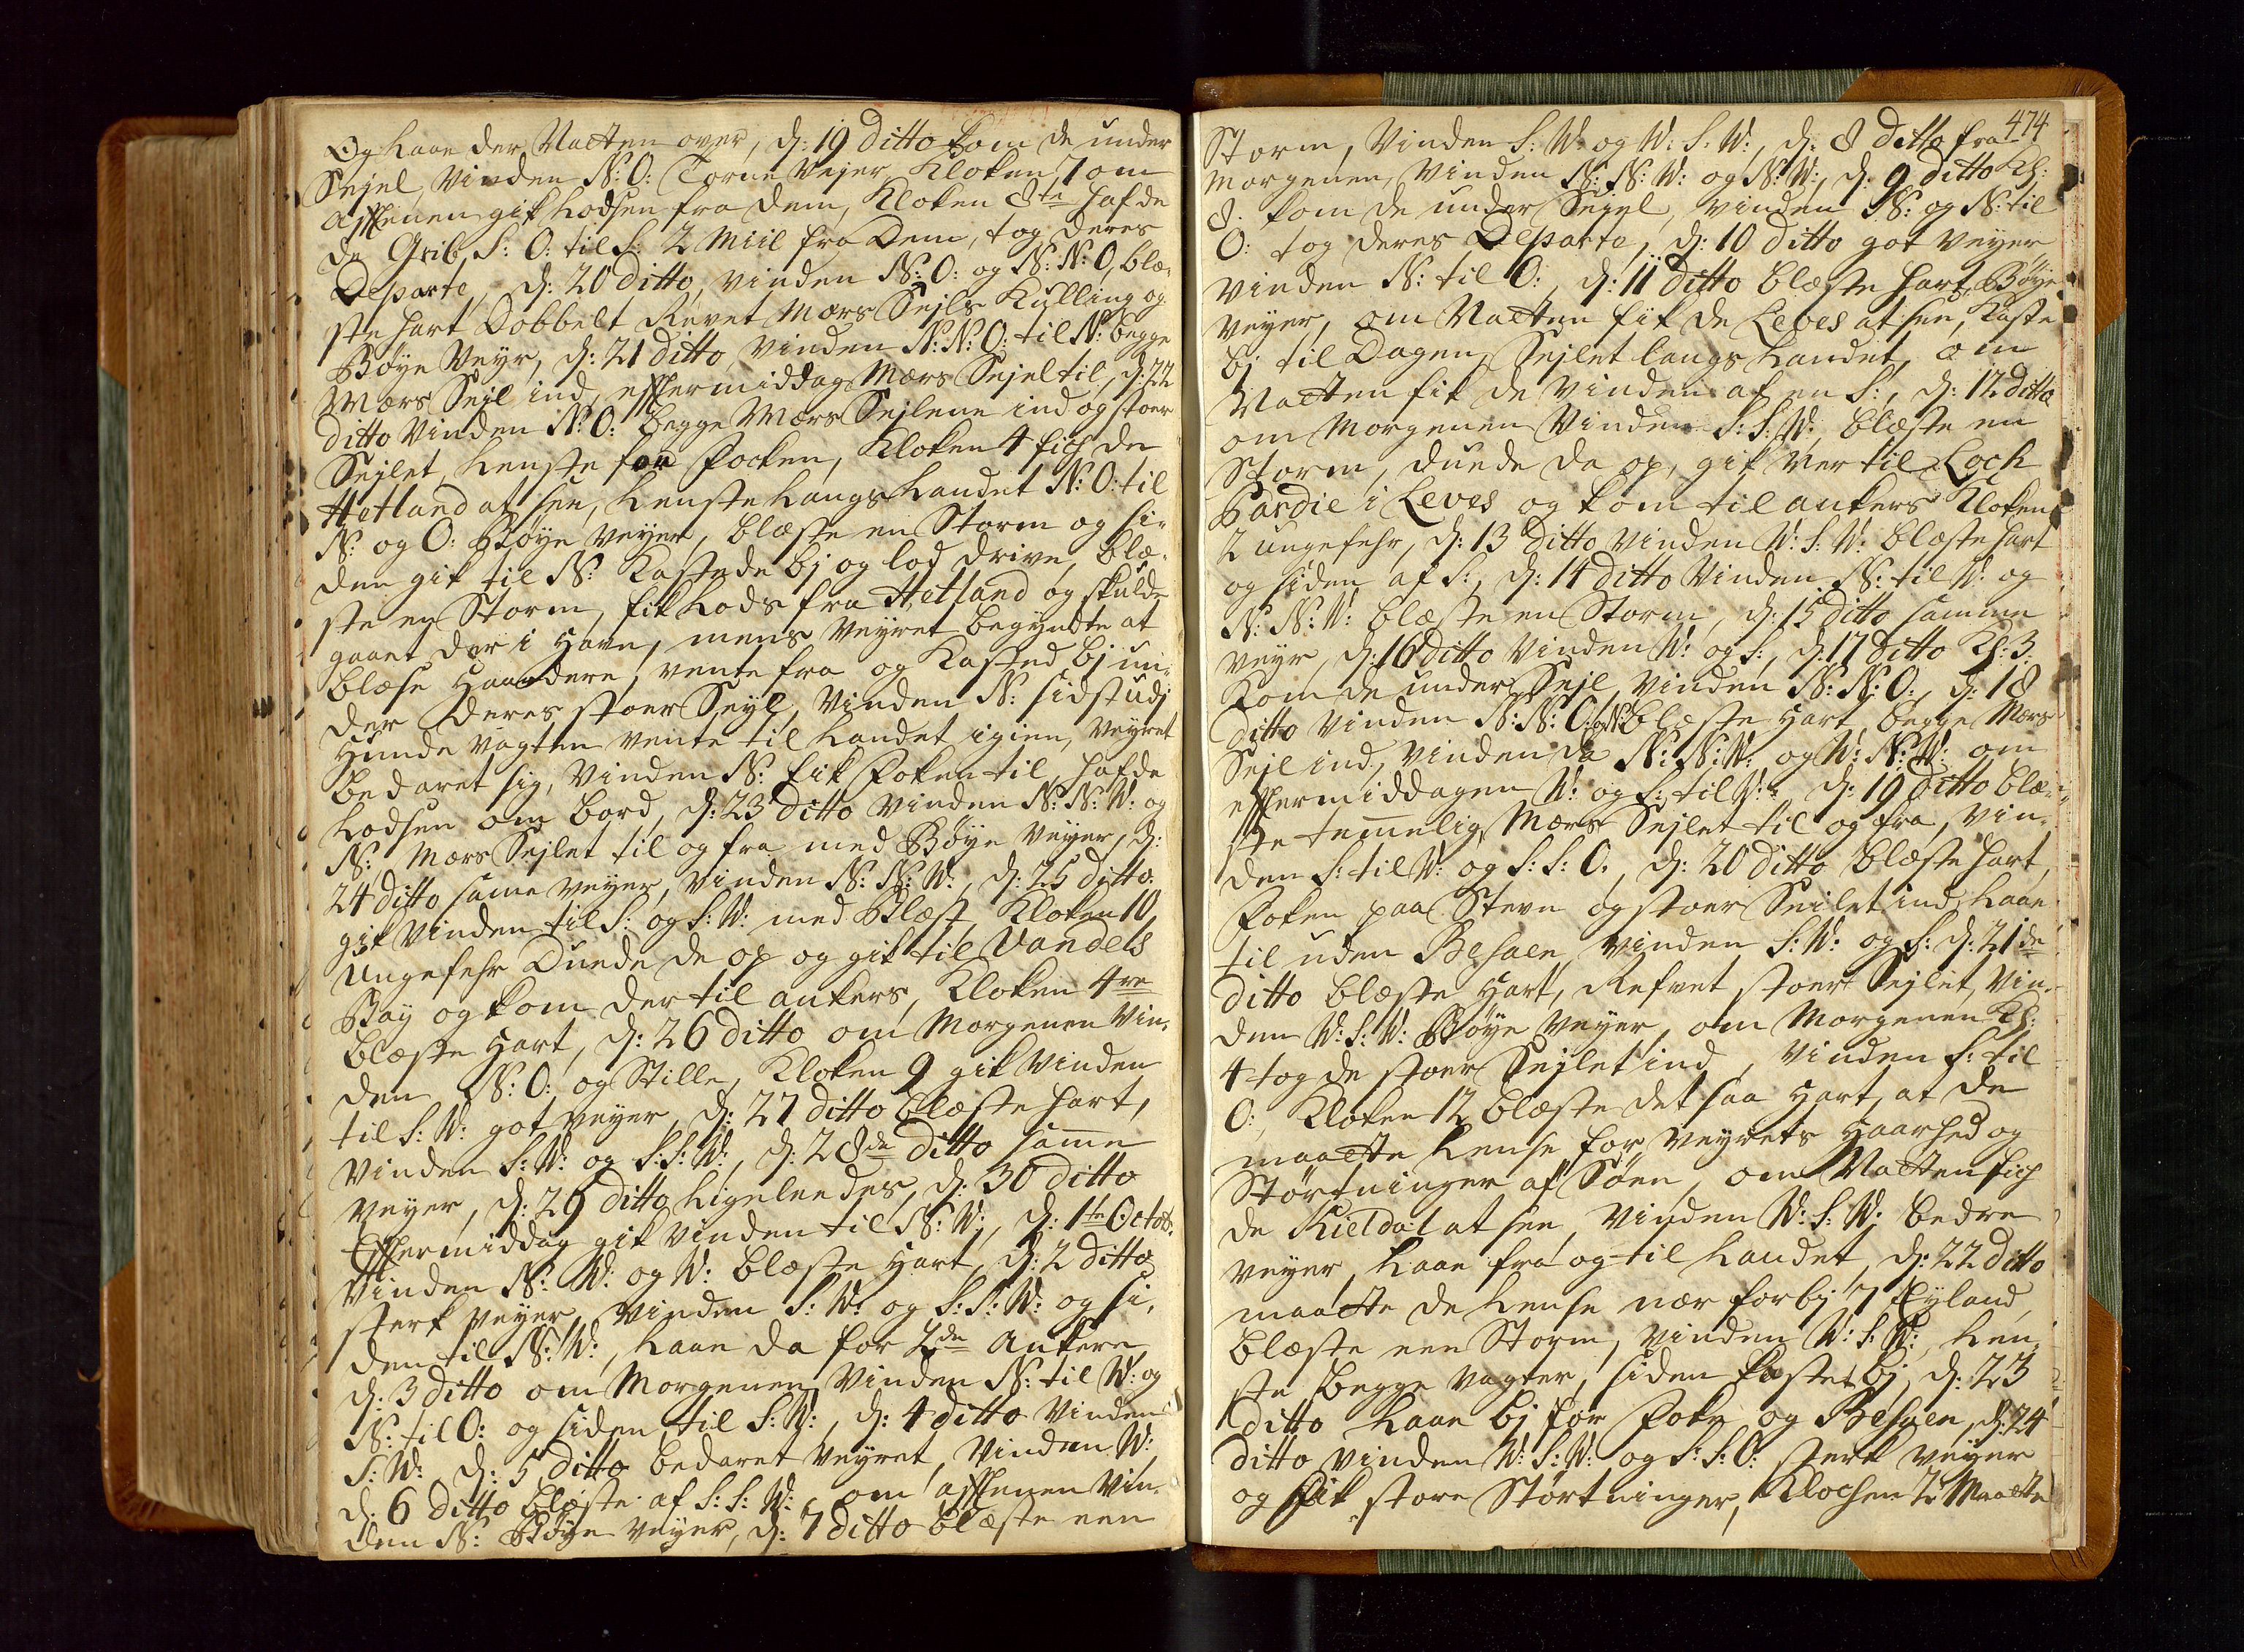 Og laae der Natten over, d: 19 ditto kom de under
Sejel, Vinden N: O: Torne Vejer Kloken 7 om
Afftenen gik Lodsen fra dem, Kloken 8te hafde
de Grib, S: O: til S: 2 Miil fra Dem, tog deres
Departe, d: 20 ditto, vinden N: O: og N: N: O, blæ-
ste hart Dobbelt Revet Mærs Sejls Kulling og
Böye Veyr, d: 21 ditto vinden N: N: O: til N: begge
Mærs Sejl ind, efftermiddag Mærs Sejel til, d: 22
ditto Vinden N: O: begge Mærs Sejlene ind og stoer
Sejlet, lenste for Focken, Kloken 4 fich de
Hetland at see, lenste langs Landet N: O: til
N: og O: Böye veyer, blæste en Storm og si-
den gik til N: Kastede bj og lod drive, blæ-
ste en Storm, fik Lods fra Hetland og skulde
gaaet der i Havn, mens Veyret begyndte at
blæse Haardere, vente fra og Kasted bj un-
der deres stoer Seyl, Vinden N: sidst udj
Hunde Vagten vente til Landet igien, Veyret
bedaret sig, Vinden N: fik Foken til, hafde
Lodsen om bord, d: 23 ditto vinden N: N: W: og
N: Mærs Sejlet til og fra med Böye Veyer, d:
24 ditto same veyer, vinden N: N: W:, d: 25 ditto
gik Vinden til S: og S: W: med Blæst, Kloken 10
Ungefehr Duede de op og gik til Vandels
Bay og kom der til ankers, Kloken 4re
blæste Hart, d: 26 ditto om Morgenen Vin-
den N: O: og Stille, Kloken 9 gik Vinden
til S: W: got veyer, d: 27 ditto blæste hart,
Vinden S: W: og S: S: W:, d: 28de ditto same
Veyer, d: 29 ditto Ligeleedes, d: 30 ditto
Efftermiddag gik Vinden til N: W:, d: 1te Octob:
Vinden N: W: og W: blæste Hart, d: 2 ditto
sterk veyer, Vinden S: W: og S: S: W: og si-
den til N: W:, Laae da for 2de Ankere,
d: 3 ditto om Morgenen Vinden N: til W: og
N: til O: og siden til S: W:, d: 4 ditto Vinden
S: W: d: 5 ditto bedaret Veyret, Vinden W:
d: 6 ditto blæste af S: S: W:, om Afftenen Vin-
den N: Böye Veyer, d: 7 ditto blæste een
474
Storm, Vinden S: W: og W: S: W:, d: 8 ditto fra
Morgenen, Vinden N: N: W: og N: W:, d: 9 ditto Kl:
8. kom de under Segel, vinden N: og N: til
O: tog deres Departe, d: 10 ditto got Veyer
vinden N: til O:, d: 11 ditto blæste hart, Böye
Veyer, om Natten fik de Leves at see, Kaste
bj til Dagen, Sejlet langs Landet, om
Natten fik de Vinden af en S:, d: 12 ditto
om Morgenen Vinden S: S: W: blæste en
Storm, duede da op, gik Ver til Loch
Pardie i Leves og kom til ankers Kloken
2 ungefehr, d: 13 ditto vinden W: S: W: blæste hart
og siden af S:, d: 14 ditto Vinden N: til W: og
N: N: W: blæste en Storm, d: 15 ditto samme
Veyr, d: 16 ditto Vinden W: og S:, d: 17 ditto Kl: 3.
Kom de under Sejl, Vinden N: N: O:, d: 18
ditto Vinden N: N: O: og N: blæste Hart, begge Mærs
Sejl ind, Vinden da N: N: W: og W: N: W: om
efftermiddagen W: og S: til W:, d: 19 ditto blæ-
ste temelig, Mærs Sejlet til og fra, Vin-
den S: til W: og S: S: O:, d: 20 ditto blæste hart,
Foken paa Stevn og stoer Seilet ind, Laae
til uden Besaen, Vinden S: W: og S: d: 21de
ditto blæste Hart, Refvet stoer Sejlet, Vin-
den W: S: W: Böye Veyer, om Morgenen Kl:
4 tog de stoer Sejlet ind, Vinden S: til
O:, Kloken 12 blæste det saa Hart, at de
maatte lense for Veyrets Haarhed og
Störtninger af Söen, om Natten fich
de Kielda: at see, Vinden W: S: W: bedre
Veyer, Laae fra og til Landet, d: 22 ditto
maatte de lense nær forbj 7 Eyland,
blæste een Storm, Vinden W: S: W:, len-
ste begge Vagter, siden kastet bj, d: 23
ditto Laae bj for Fok og Besaen, d: 24
ditto Vinden W: S: W: og S: S: O: sterk Veyer
og fik store Störtninger, Klochen 7 Maatte